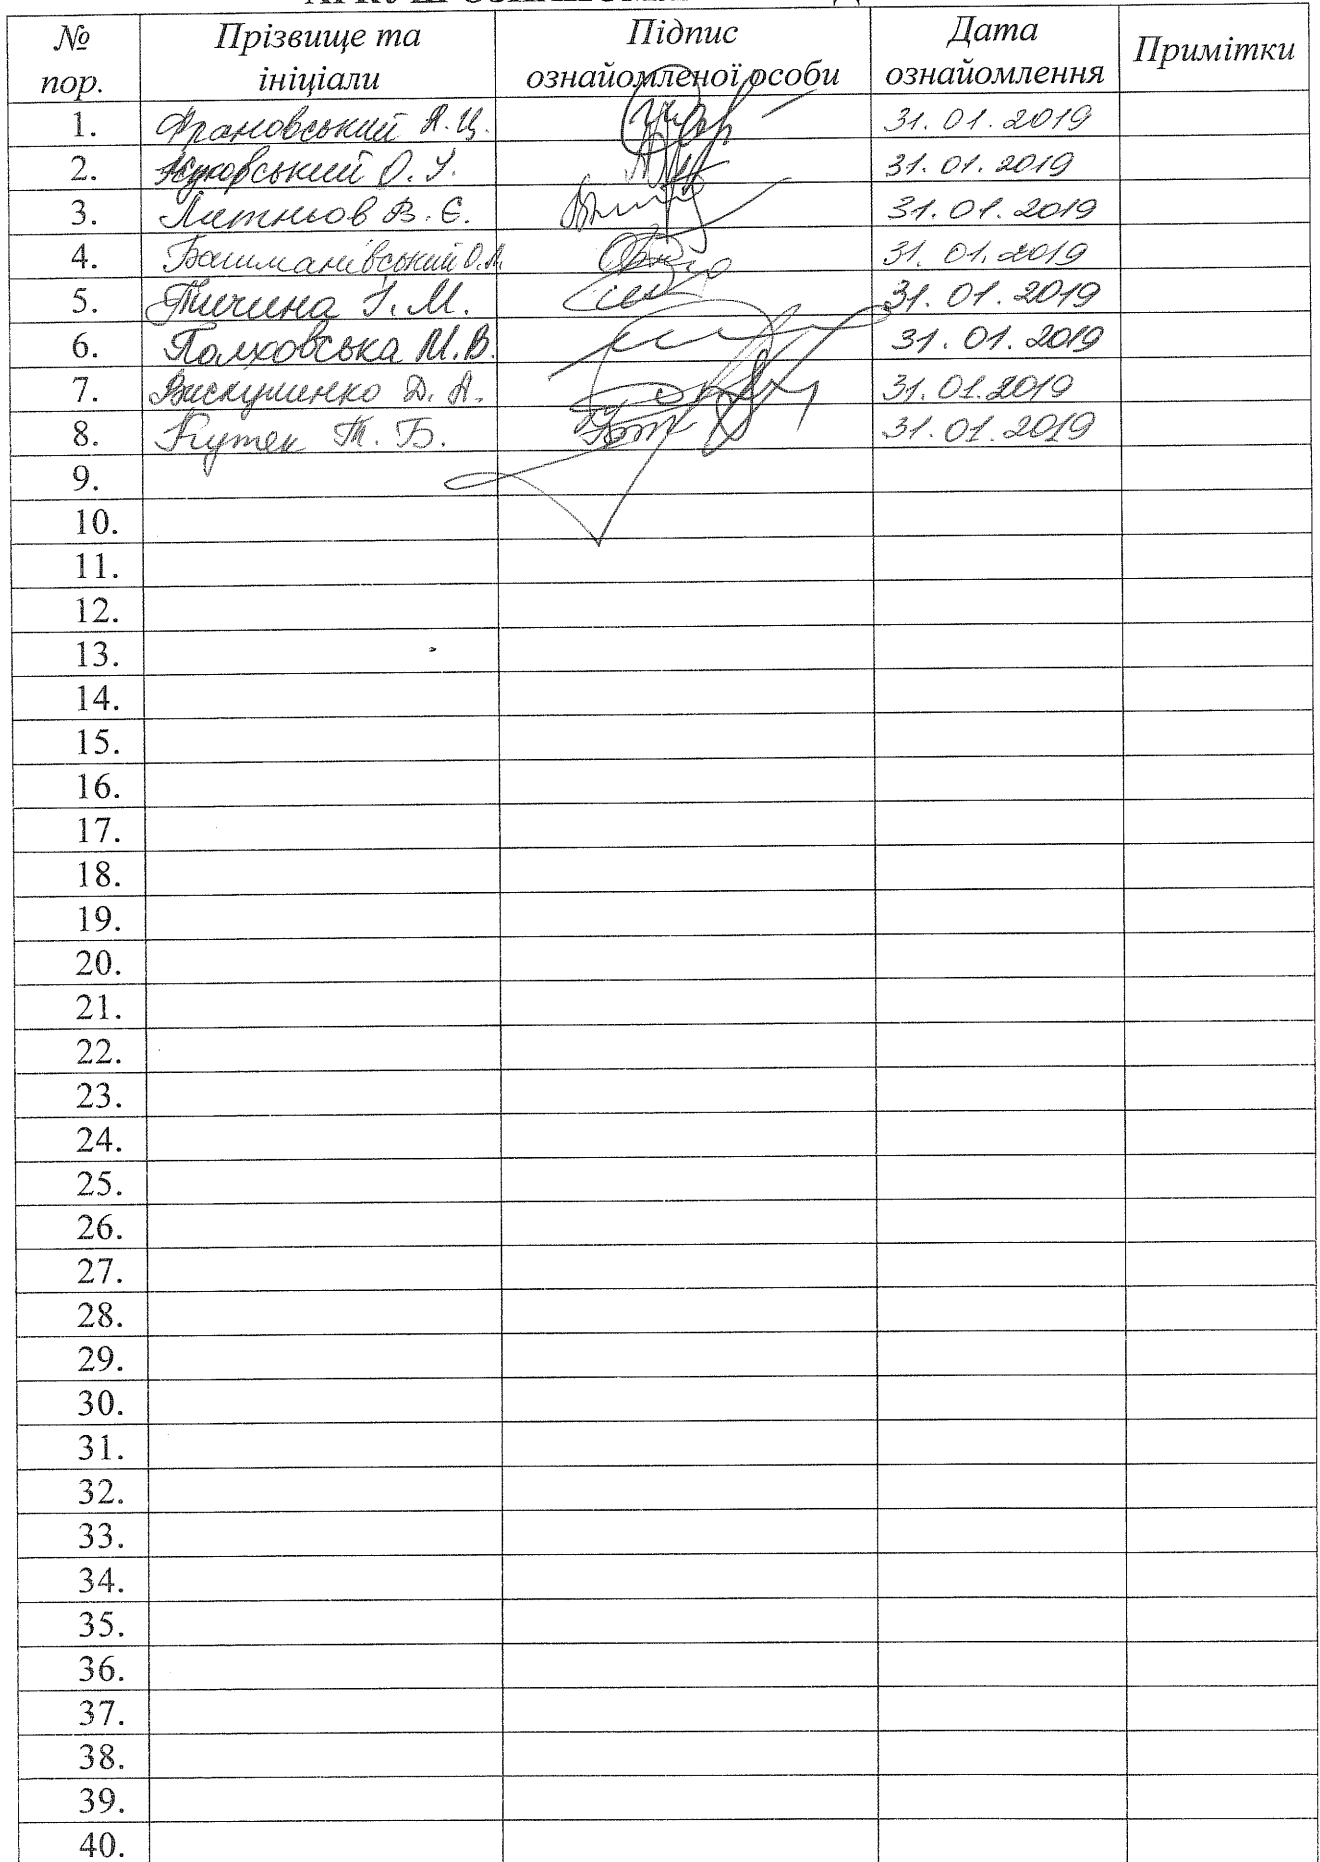 № пор. Прізвище та ініціали Підпис ознайомленої особи Дата ознайомлення Примітки
1. Франовський А. Ц. 31.01.2019
2. О. 31.01.2019
3. Литньов В. Є. 31.01.2019
4. Башманівський О. Л. 31.01.2019
5. Тичина І. М. 31.01.2019
6. Полховська М. В. 31.01.2019
7. Вискушенко Д. А. 31.01.2019
8. Кутек Т. Б. 31.01.2019
9.
10.
11.
12.
13.
14.
15.
16.
17.
18.
19.
20.
21.
22.
23.
24.
25.
26.
27.
28.
29.
30.
31.
32.
33.
34.
35.
36.
37.
38.
39.
40.